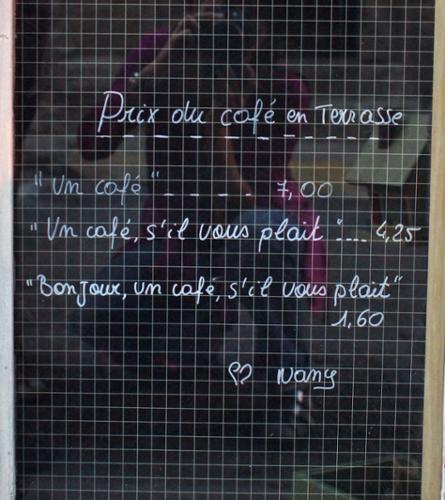 Prix du café en Terrasse
"Un café" _ _ _ _ _ 7,00
"Un café, s'il vous plait".... 4,25
"Bonjour, un café, s'il vous plait"
1,60
♡